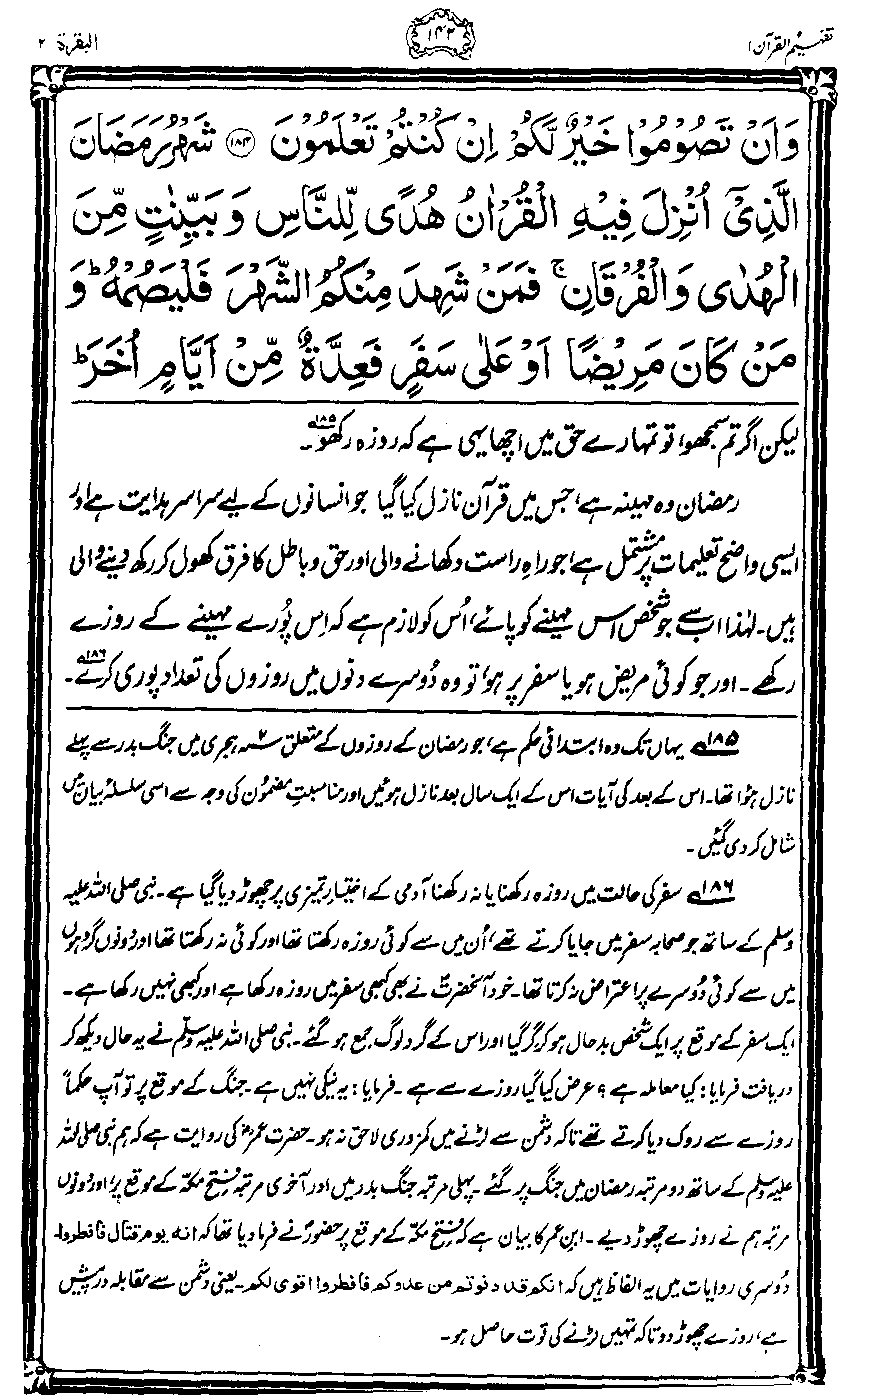 تفہیم القرآن ۱
۱۴۲
البقرۃ ۲
وَاَنْ تَصُوْمُوْا خَيْرٌ لَّكُمْ اِنْ كُنْتُمْ تَعْلَمُوْنَ ﴿۱۸۴﴾ شَهْرُ رَمَضَانَ
الَّذِىْٓ اُنْزِلَ فِيْهِ الْقُرْاٰنُ هُدًى لِّلنَّاسِ وَ بَيِّنٰتٍ مِّنَ
الْهُدٰى وَالْفُرْقَانِ ۚ فَمَنْ شَهِدَ مِنْكُمُ الشَّهْرَ فَلْيَصُمْهُ ؕ وَ
مَنْ كَانَ مَرِيْضًا اَوْ عَلٰى سَفَرٍ فَعِدَّةٌ مِّنْ اَيَّامٍ اُخَرَ ؕ
لیکن اگر تم سمجھو، تو تمہارے حق میں اچھا یہی ہے کہ روزہ رکھو۱۸۵۔
رمضان وہ مہینہ ہے، جس میں قرآن نازل کیا گیا جو انسانوں کے لیے سراسر ہدایت ہے اور
ایسی واضح تعلیمات پر مشتمل ہے، جو راہِ راست دکھانے والی اور حق و باطل کا فرق کھول کر رکھ دینے والی
ہیں۔ لہٰذا اب سے جو شخص اس مہینے کو پائے، اُس کو لازم ہے کہ اِس پُورے مہینے کے روزے
رکھے۔ اور جو کوئی مریض ہو یا سفر پر ہو، تو وہ دُوسرے دنوں میں روزوں کی تعداد پوری کرے۱۸۶۔
۱۸۵؎ یہاں تک وہ ابتدائی حکم ہے، جو رمضان کے روزوں کے متعلق ۲ سنہ ہجری میں جنگ بدر سے پہلے
نازل ہؤا تھا۔ اس کے بعد کی آیات اس کے ایک سال بعد نازل ہوئیں اور مناسبتِ مضمُون کی وجہ سے اسی سلسلۂ بیان میں
شامل کر دی گئیں۔
۱۸۶؎ سفر کی حالت میں روزہ رکھنا یا نہ رکھنا آدمی کے اختیارِ تمیزی پر چھوڑ دیا گیا ہے۔ نبی صلی اللہ علیہ
وسلم کے ساتھ جو صحابہ سفر میں جایا کرتے تھے، اُن میں سے کوئی روزہ رکھتا تھا اور کوئی نہ رکھتا تھا اور دونوں گروہوں
میں سے کوئی دُوسرے پر اعتراض نہ کرتا تھا۔ خود آنحضرتؐ نے بھی کبھی سفر میں روزہ رکھا ہے اور کبھی نہیں رکھا ہے۔
ایک سفر کے موقع پر ایک شخص بدحال ہو کر گر گیا اور اس کے گرد لوگ جمع ہو گئے۔ نبی صلی اللہ علیہ وسلم نے یہ حال دیکھ کر
دریافت فرمایا: کیا معاملہ ہے؟ عرض کیا گیا روزے سے ہے۔ فرمایا: یہ نیکی نہیں ہے۔ جنگ کے موقع پر تو آپ حکماً
روزے سے روک دیا کرتے تھے تاکہ دشمن سے لڑنے میں کمزوری لاحق نہ ہو۔ حضرت عمرؓ کی روایت ہے کہ ہم نبی صلی اللہ
علیہ وسلم کے ساتھ دو مرتبہ رمضان میں جنگ پر گئے۔ پہلی مرتبہ جنگ بدر میں اور آخری مرتبہ فتح مکہ کے موقع پر، اور دونوں
مرتبہ ہم نے روزے چھوڑ دیے۔ ابن عمر کا بیان ہے کہ فتح مکہ کے موقع پر حضورؐ نے فرما دیا تھا کہ انه یوم قتال فافطروا۔
دُوسری روایات میں یہ الفاظ ہیں کہ انکم قد دنوتم من عدوکم فافطروا اقوی لکم۔ یعنی دشمن سے مقابلہ درپیش
ہے، روزے چھوڑ دو تاکہ تمہیں لڑنے کی قوت حاصل ہو۔